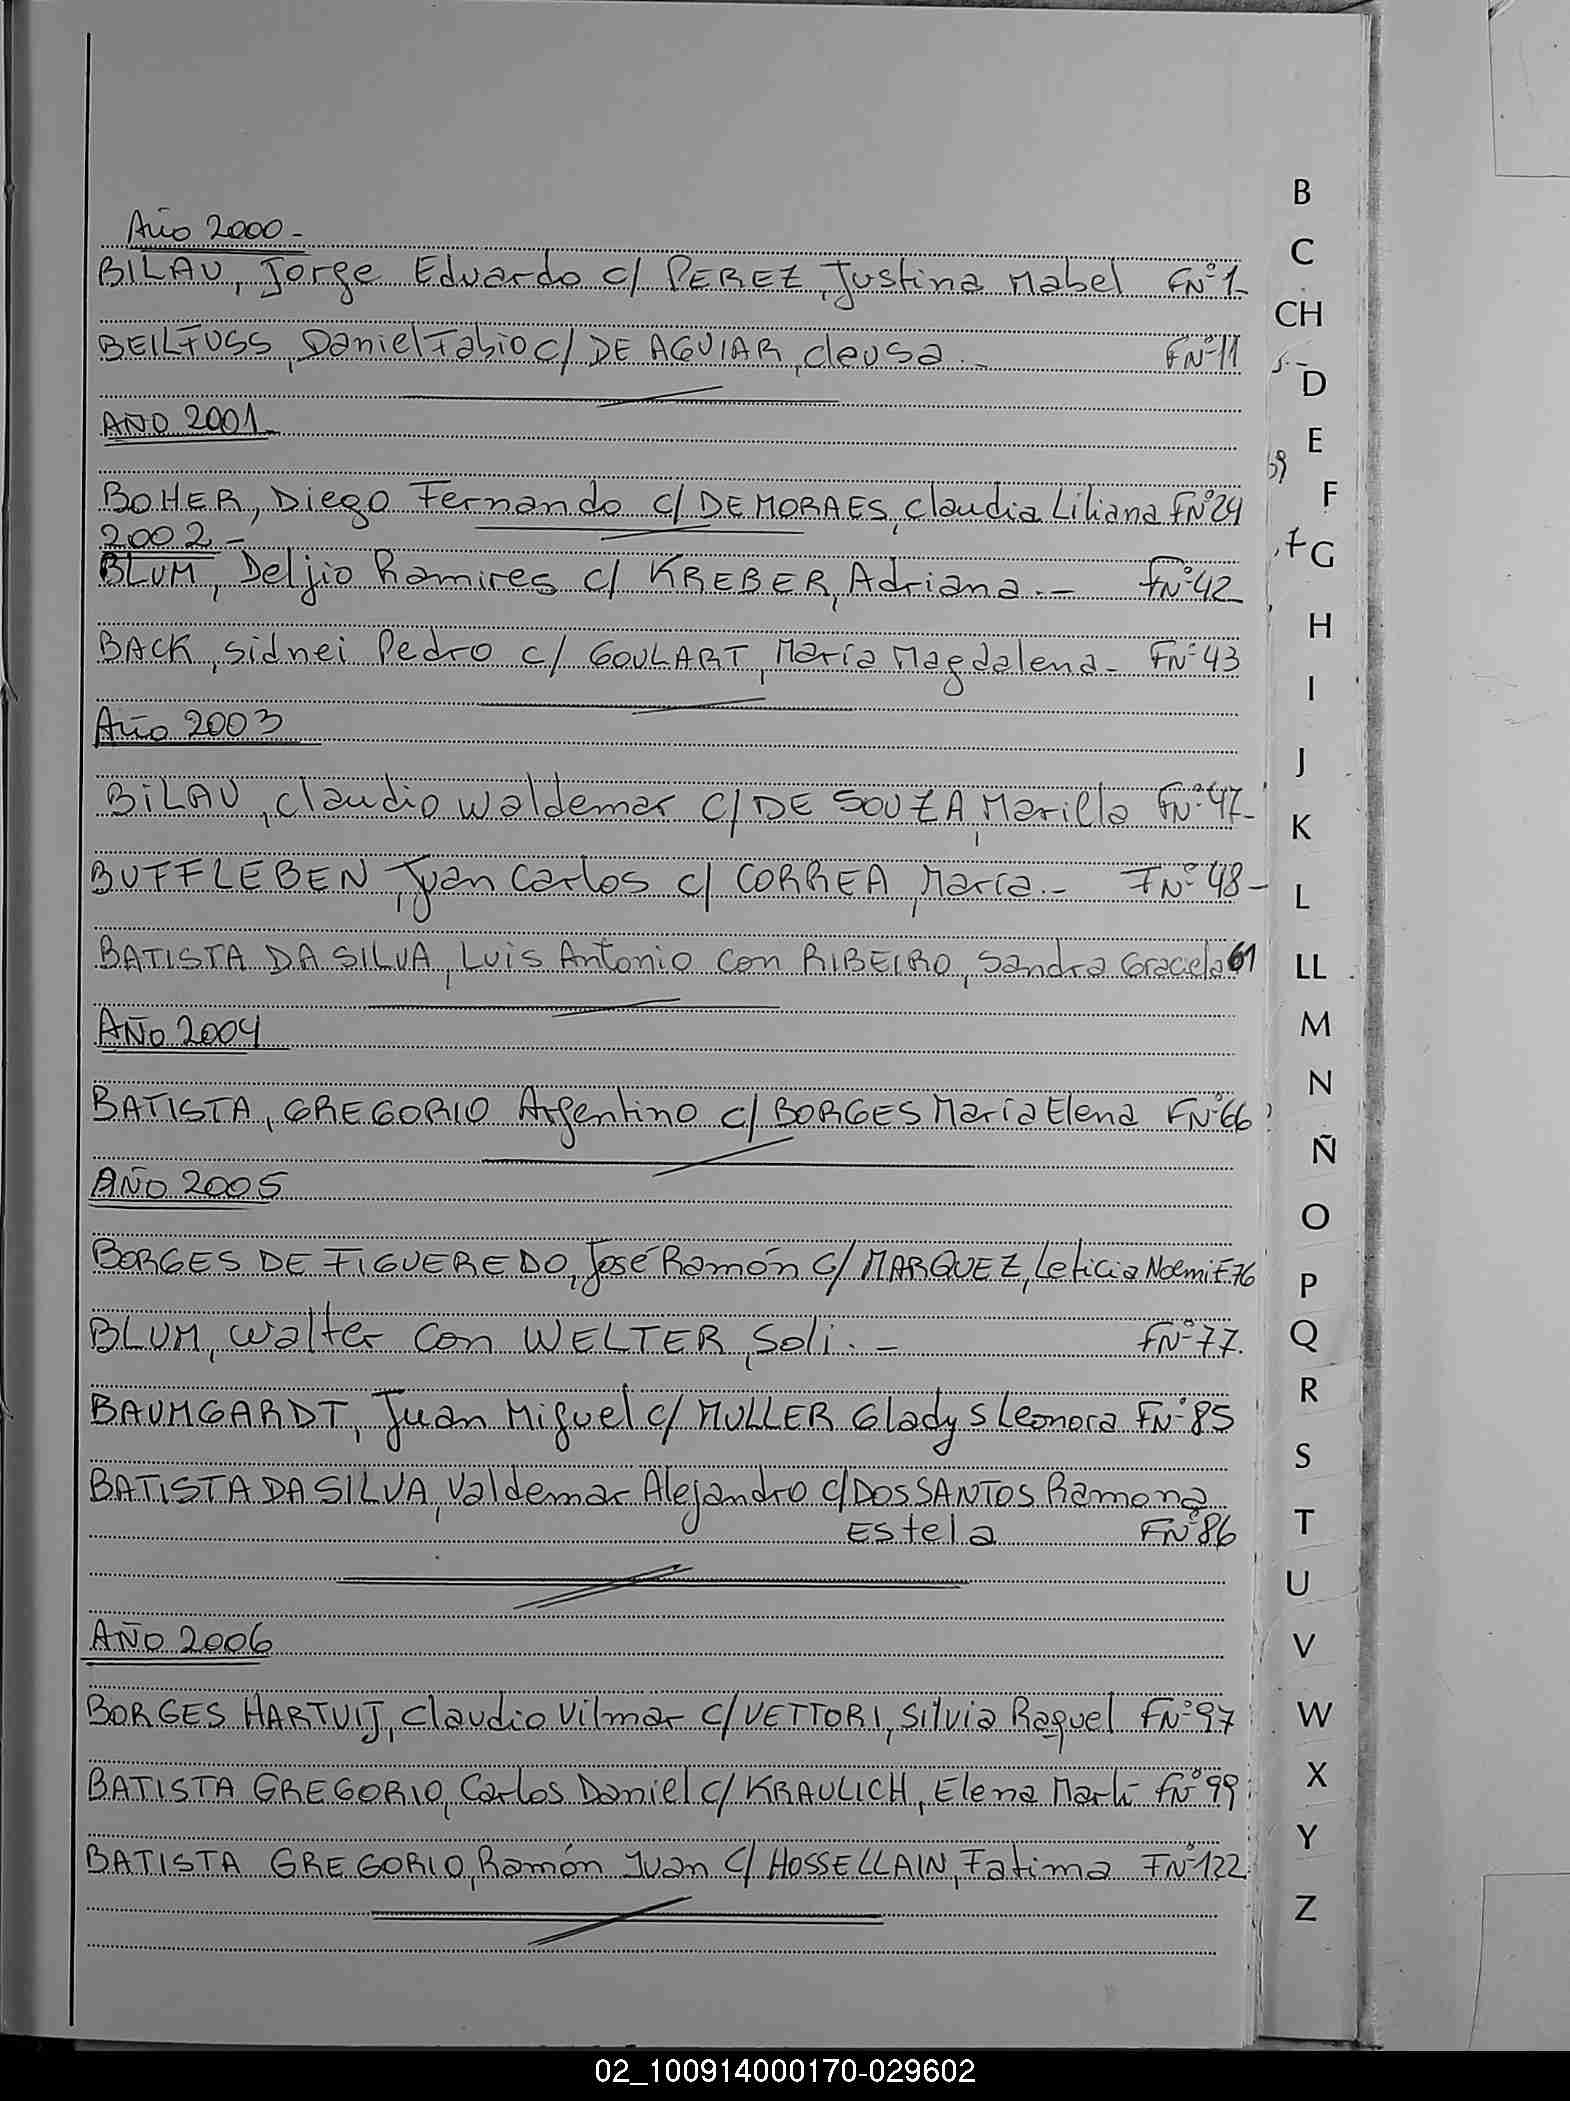 Año 2000-
BILAU, Jorge Eduardo c/ PEREZ, Justina Mabel FNº1-
BEILFUSS, Daniel Fabio c/ DE AGUIAR, cleusa.- FNº11
AÑO 2001-
BOHER, Diego Fernando c/ DE MORAES, Claudia Liliana FNº24
2002-
BLUM, Deljio Ramires c/ KREBER, Adriana.- FNº42
BACK, sidnei Pedro c/ GOULART, María Magdalena- FNº43
Año 2003
BILAU, Claudio Waldemar c/ DE SOUZA, Marilla FNº47-
BUFFLEBEN, Juan Carlos c/ CORREA, María.- FNº48-
BATISTA DA SILVA, Luis Antonio con RIBEIRO, Sandra Graciela 61
AÑO 2004
BATISTA, GREGORIO Argentino c/ BORGES María Elena FNº66
AÑO 2005
BORGES DE FIGUEREDO, José Ramón c/ MARQUEZ, Leticia Noemi F.76
BLUM, Walter con WELTER, Soli.- FNº77.
BAUMGARDT, Juan Miguel c/ MULLER Gladys Leonora FNº85
BATISTA DA SILVA, Valdemar Alejandro c/ DOS SANTOS Ramona
Estela FNº86
AÑO 2006
BORGES HARTUIJ, Claudio Vilmar c/ VETTORI, Silvia Raquel FNº97
BATISTA GREGORIO, Carlos Daniel c/ KRAULICH, Elena Marli FNº99
BATISTA GREGORIO, Ramón Juan c/ HOSSELLAIN, Fatima FNº122
B
C
CH
D
E
F
G
H
I
J
K
L
LL
M
N
Ñ
O
P
Q
R
S
T
U
V
W
X
Y
Z
02_100914000170-029602